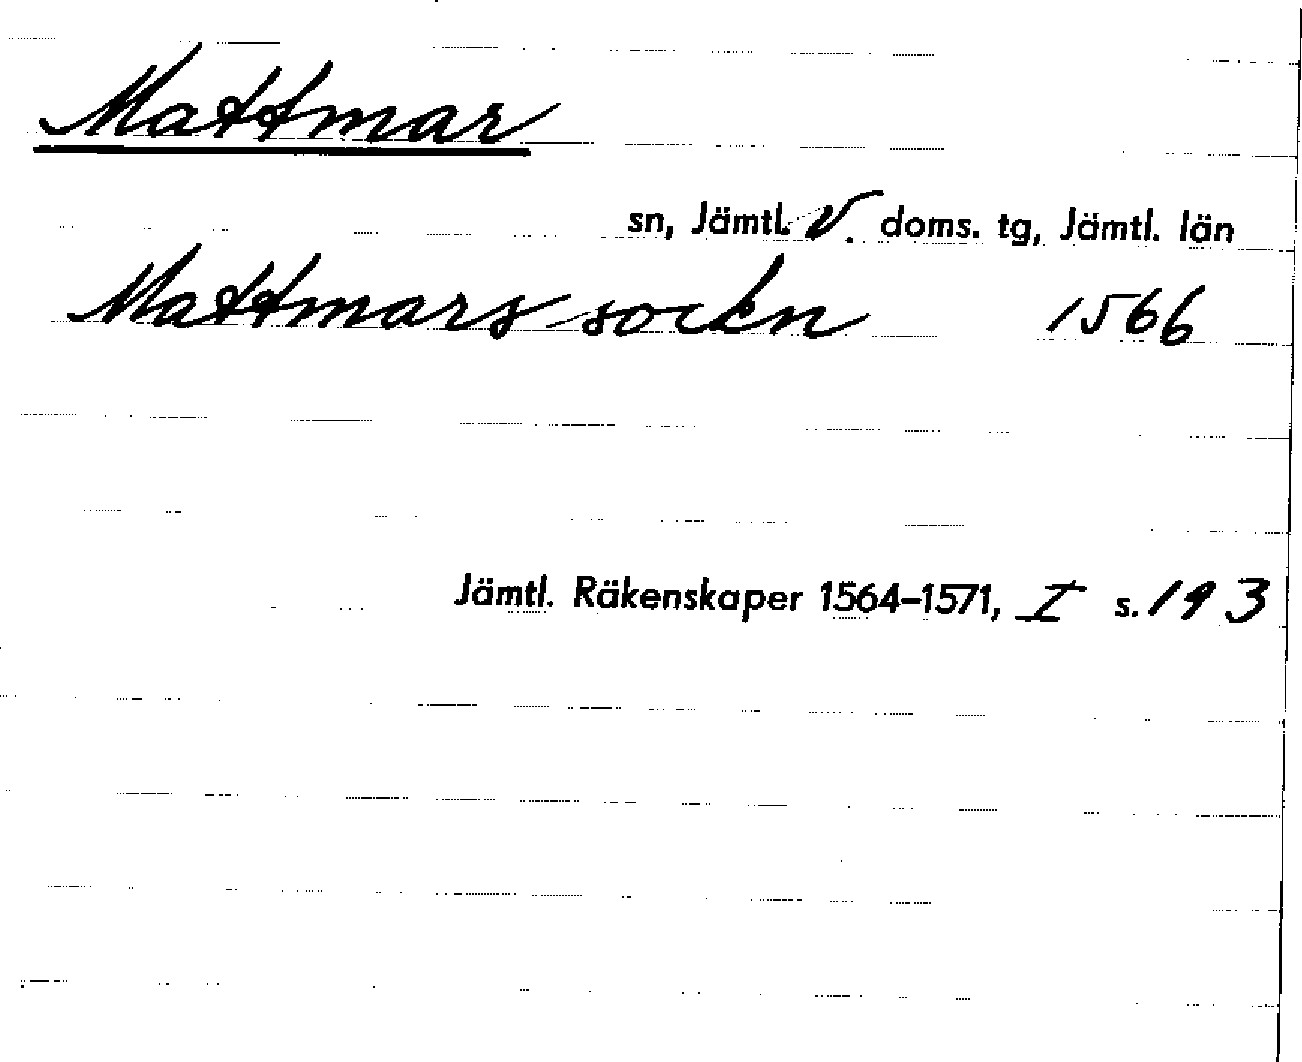 Mattmar
sn, Jämtl. V. doms. tg, Jämtl. län
Mattmars sockn 1566
Jämtl. Räkenskaper 1564–1571, I s. 193